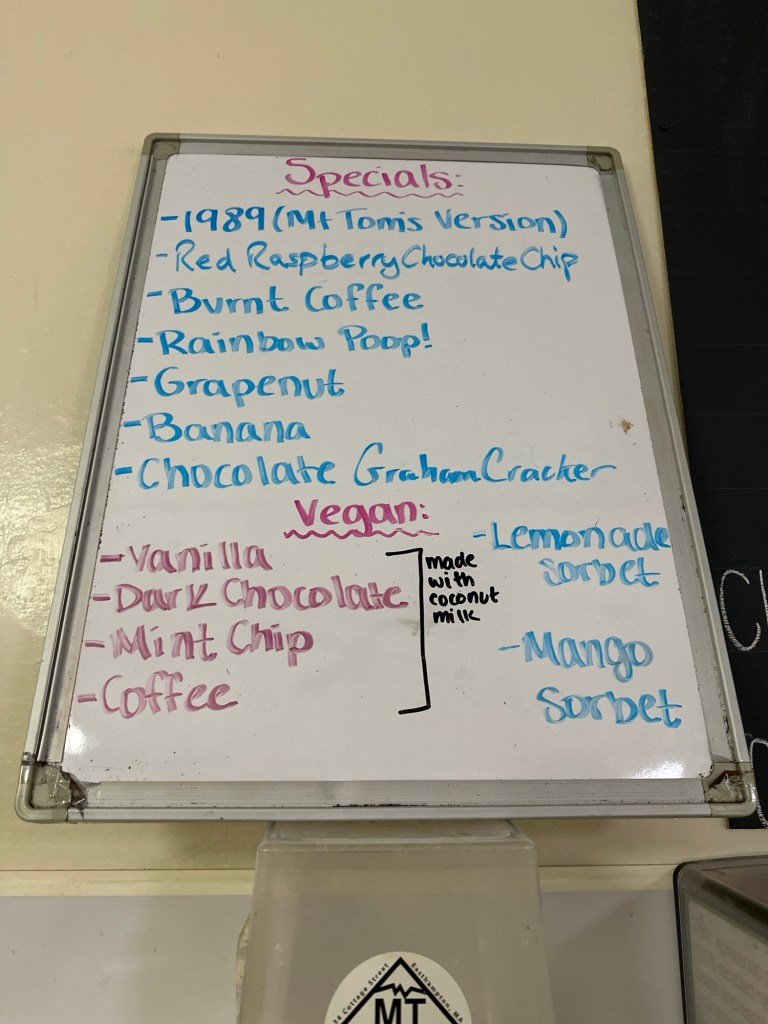 Specials:
-1989 (Mt Tom's Version)
-Red Raspberry Chocolate Chip
-Burnt Coffee
-Rainbow Poop!
-Grapenut
-Banana
-Chocolate Graham Cracker
Vegan:
-Vanilla
-Dark Chocolate
-Mint Chip
-Coffee
made
with
coconut
milk
-Lemonade
Sorbet
-Mango
Sorbet
Cottage Street
Easthampton, MA
MT